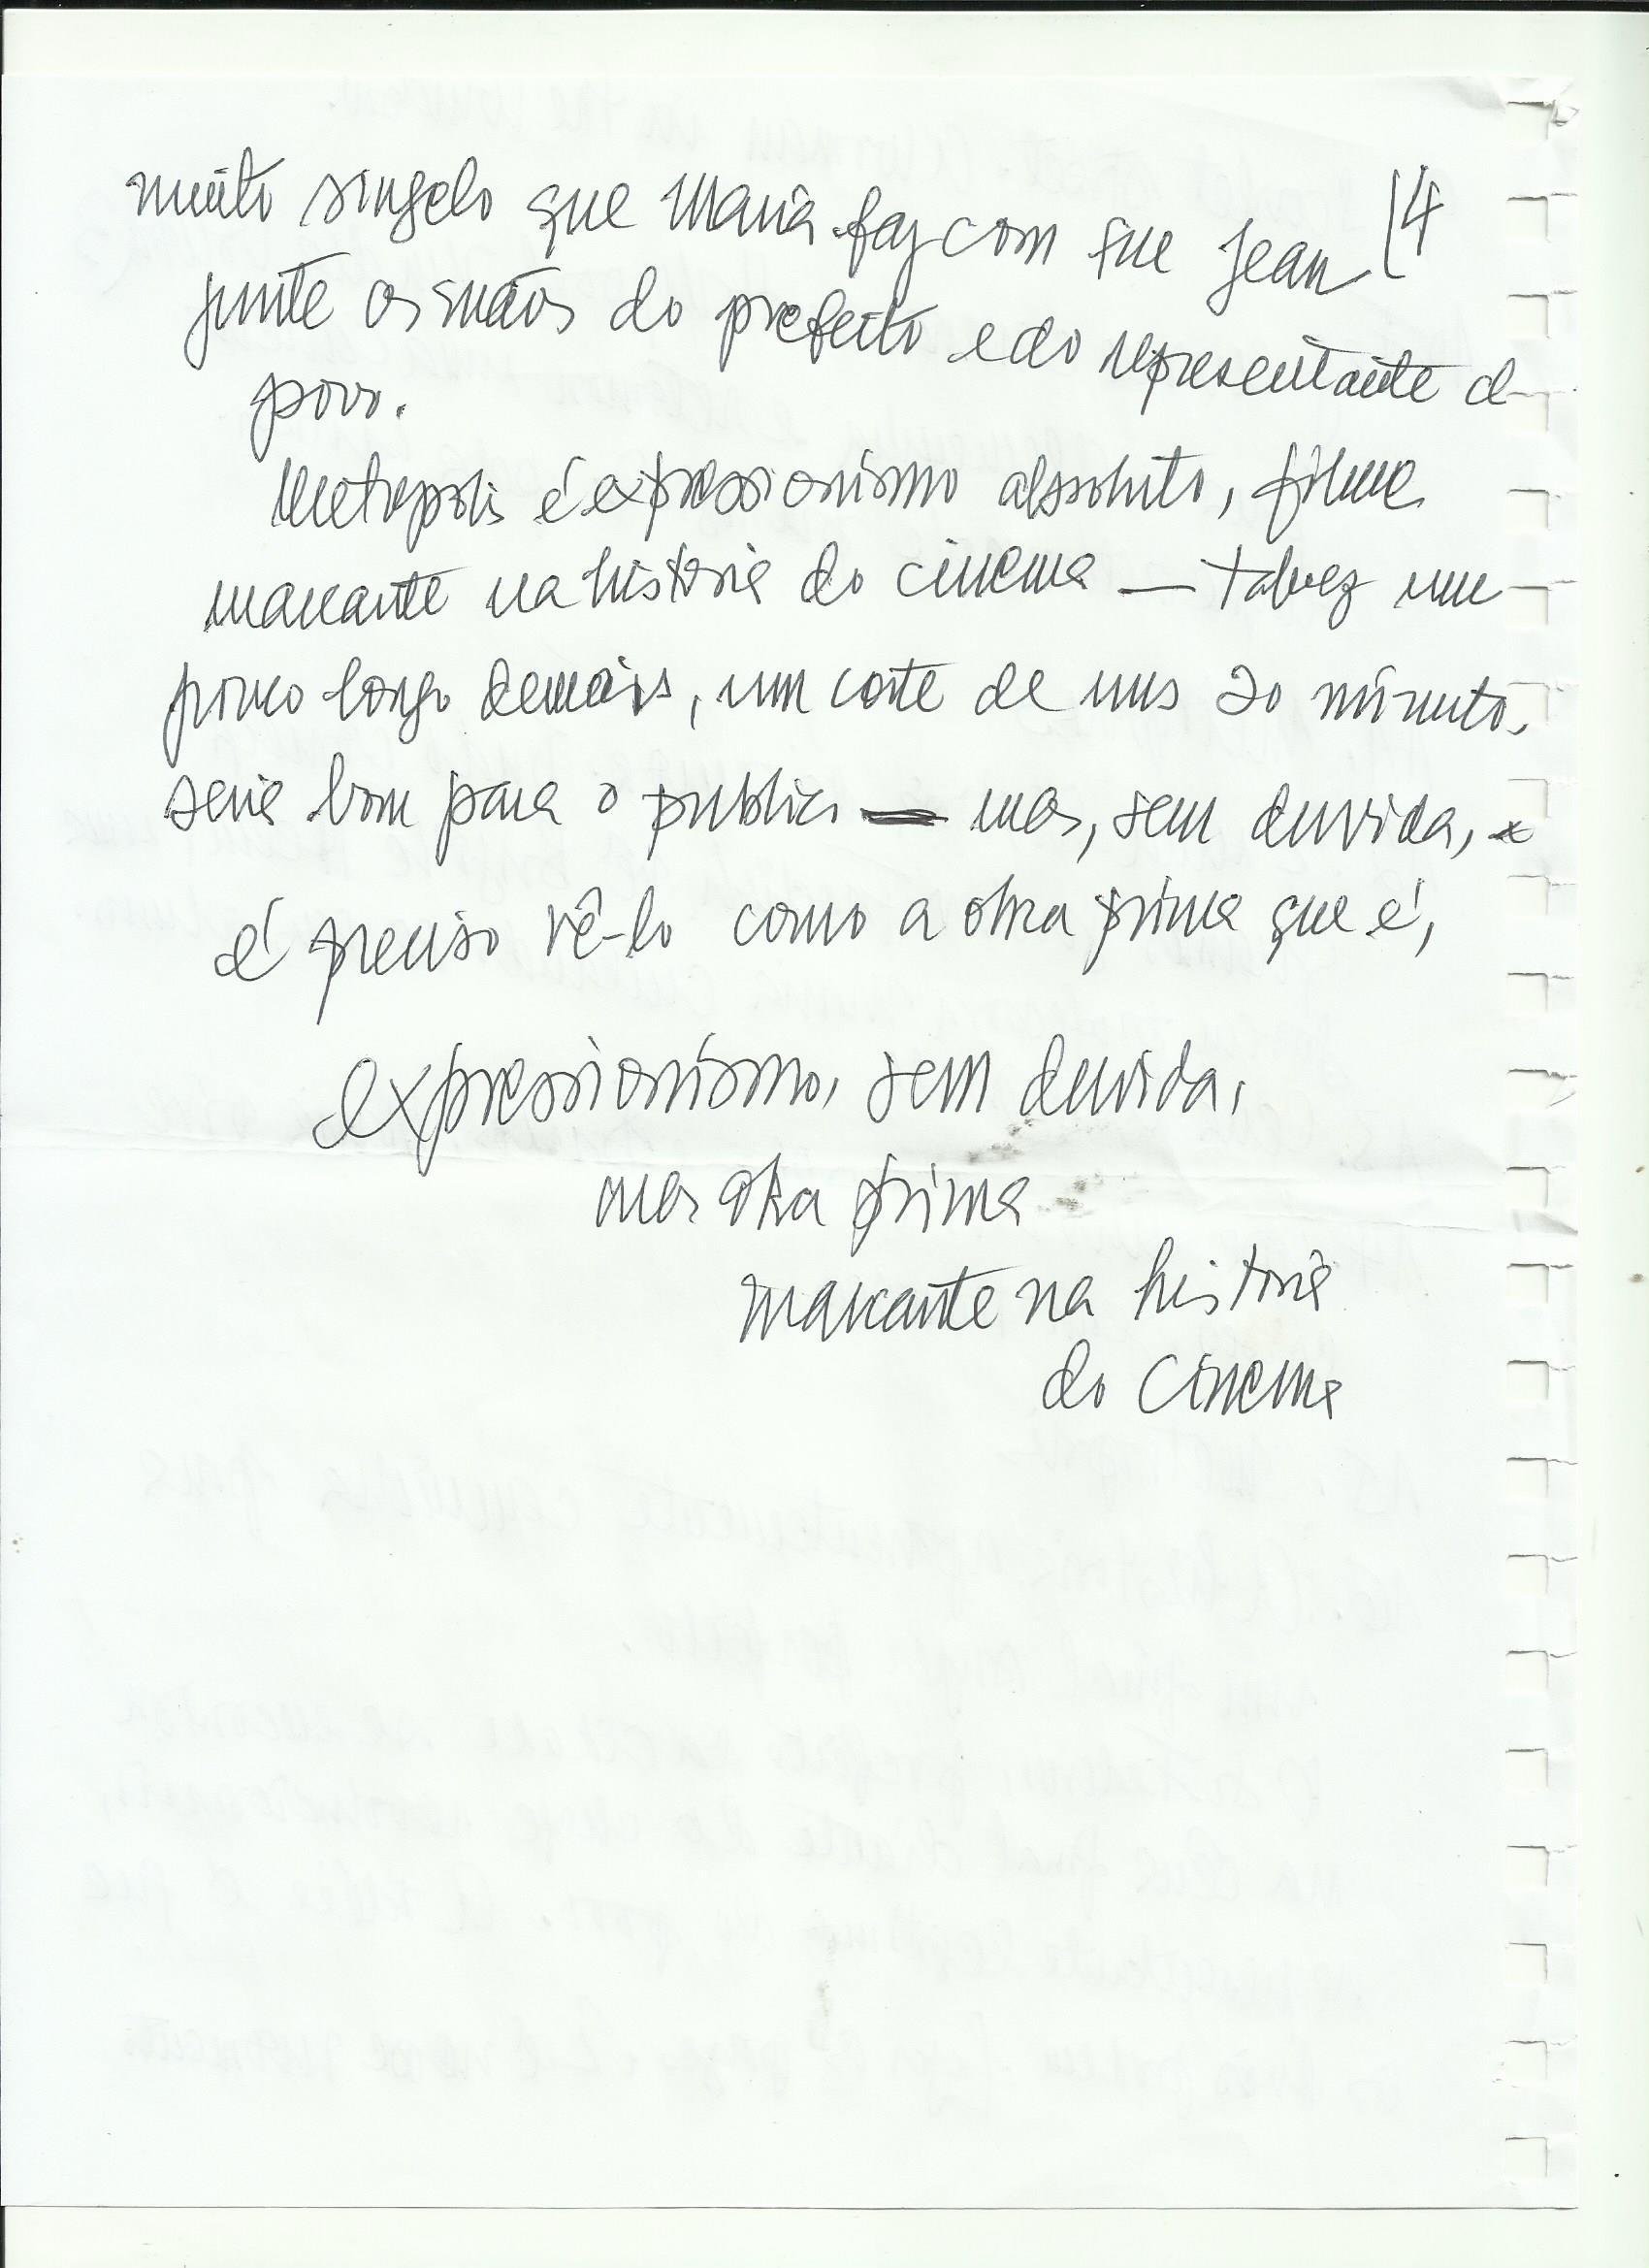 muito singelo que Maria faz com que Jean 14
junte as mãos do prefeito e do representante d
povo.
Metropolis é expressionismo absoluto, filme
marcante na historia do cinema — talvez um
pouco longo demais, um corte de uns 20 minutos
seria bom para o publico — mas, sem duvida,
é preciso vê-lo como a obra prima que é,
expressionismo, sem duvida,
mas obra prima
marcante na historia
do cinema